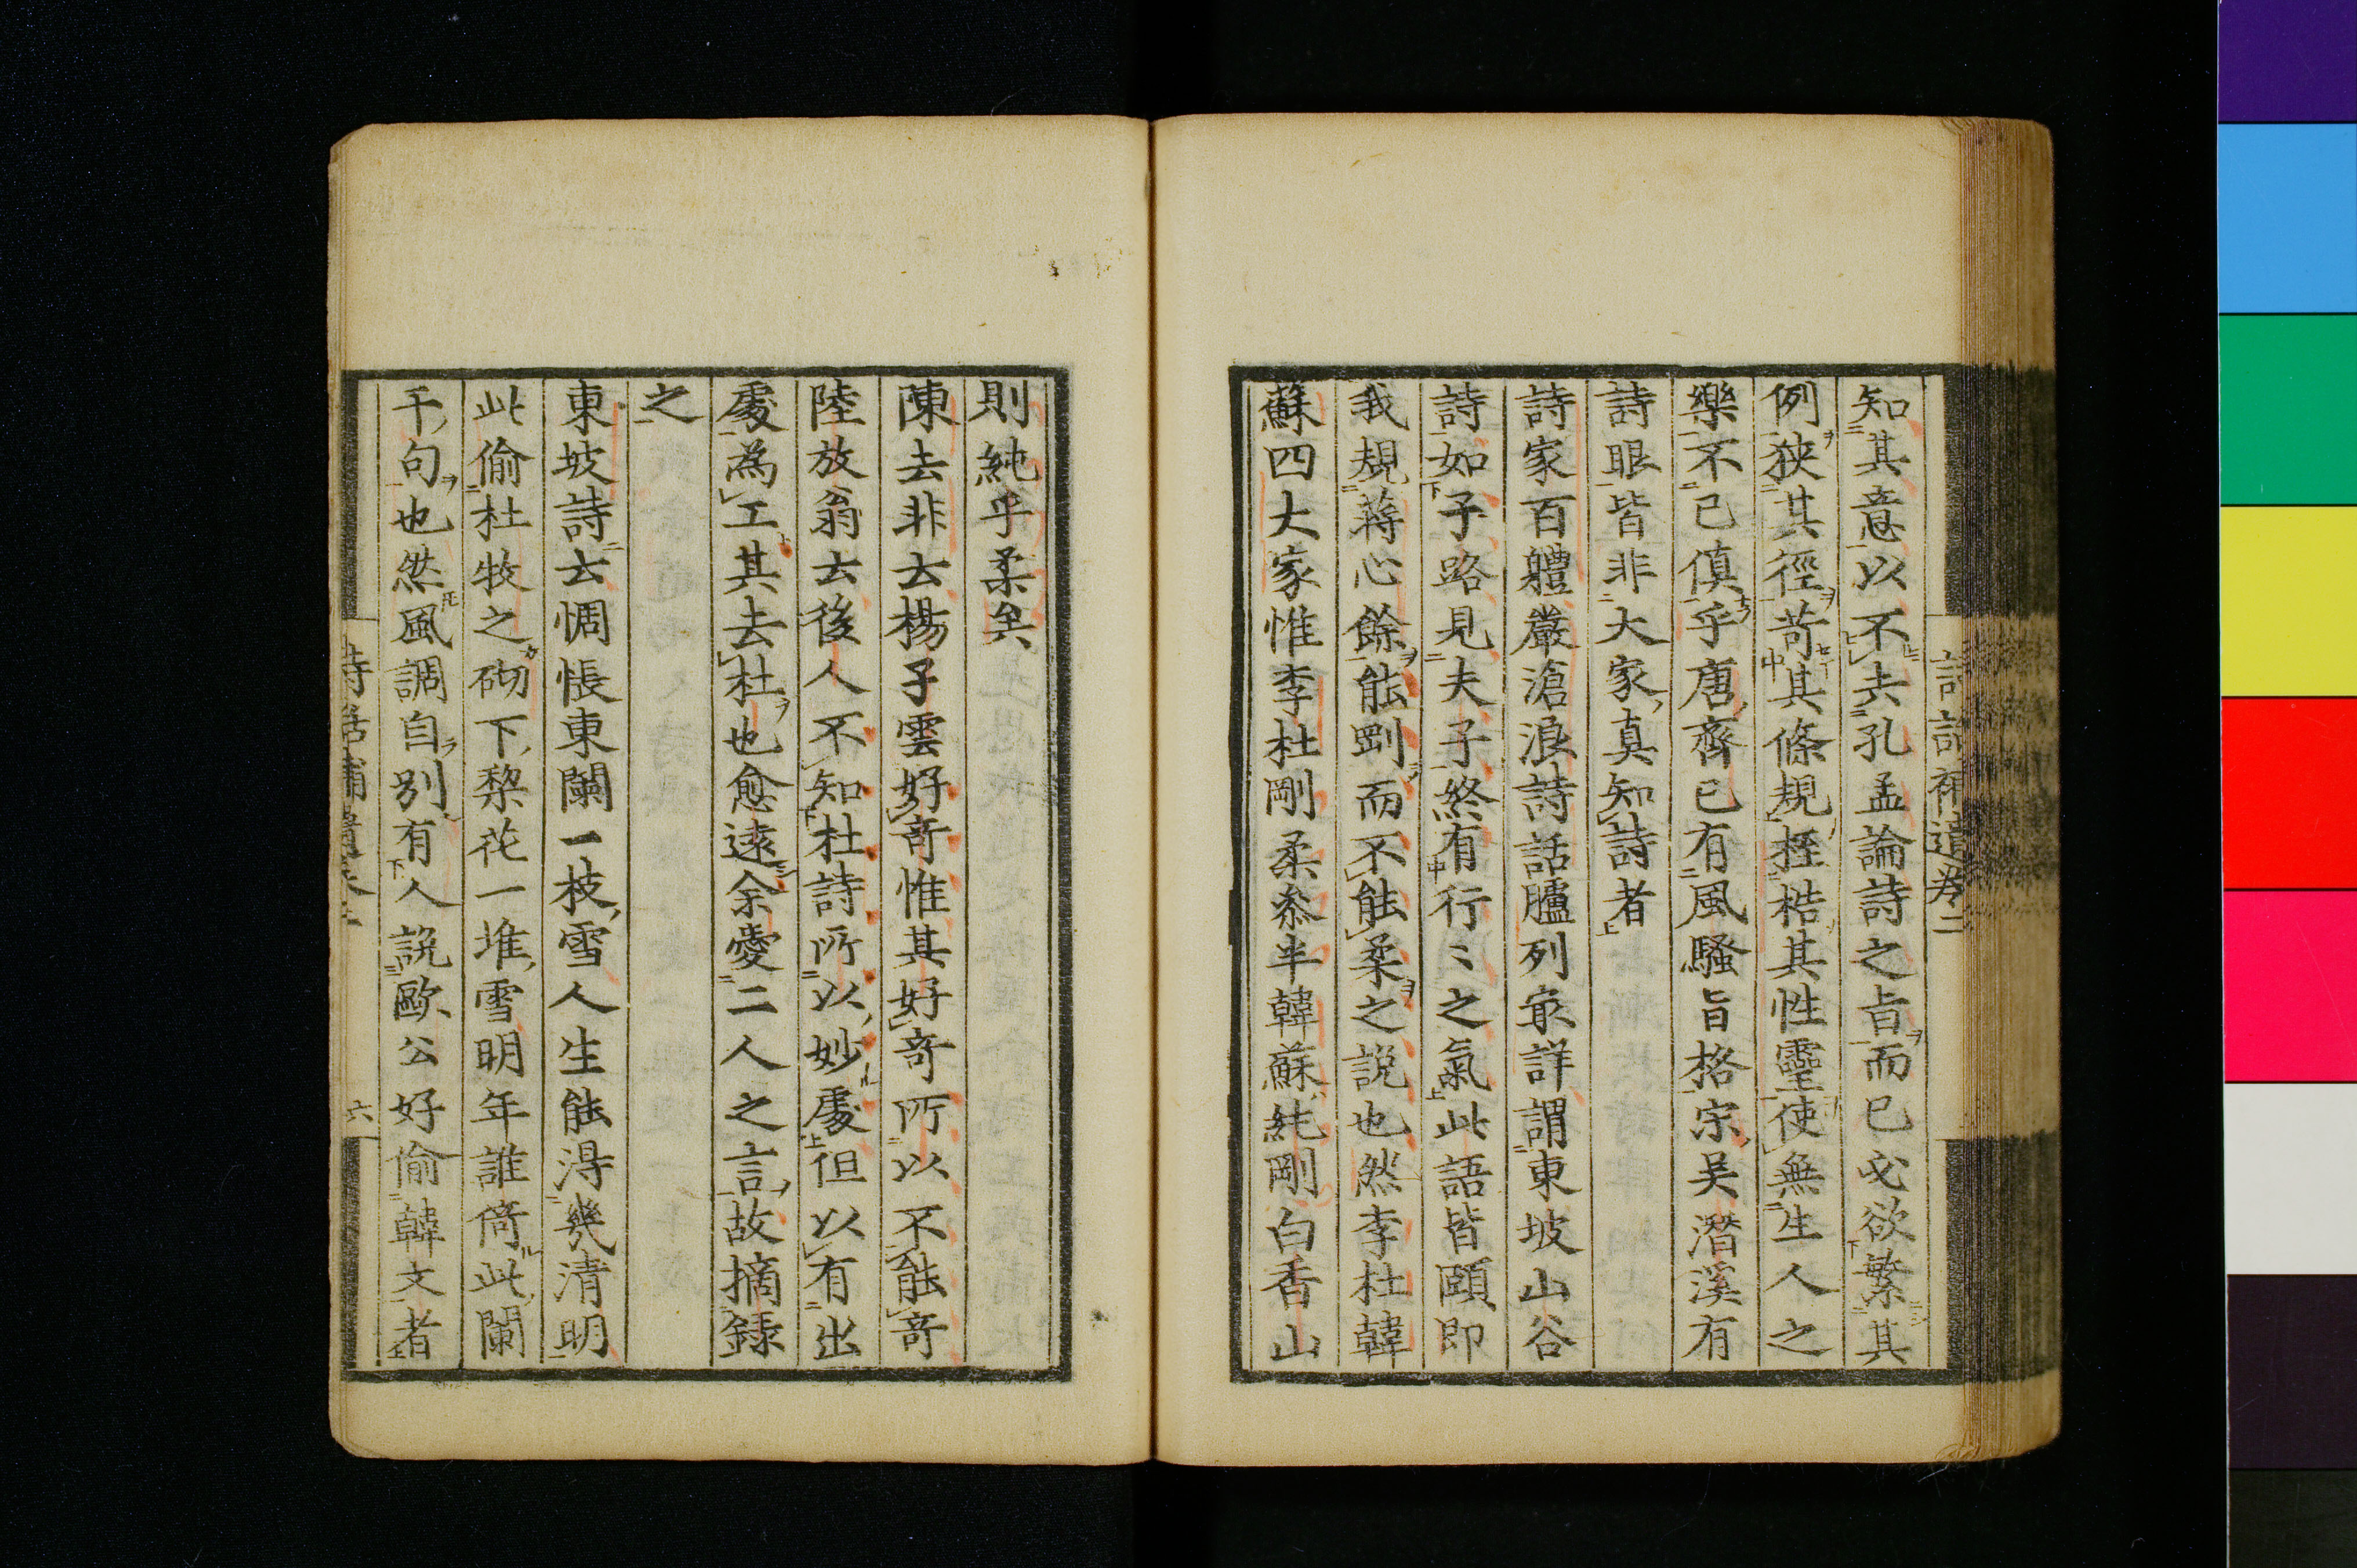 知其意以不去孔孟論詩之旨而已必欲繁其
例狹其徑苛其條規桎梏其性靈使無生人之
樂不已傎乎唐齊已有風騷旨格宗吴潛溪有
詩眼皆非大家真知詩者
詩家百軆嚴滄浪詩話臚列最詳謂東坡山谷
詩如子路見夫子終有行〻之氣此語皆頤即
我規蔣心餘能剛而不能柔之説也然李杜韓
蘇四大家惟李杜剛柔叅半韓蘇純剛白香山
則純乎柔矣
陳去非云楊子雲好竒惟其好竒所以不能竒
陸放翁云後人不知杜詩所以妙處但以有出
處為工其去杜也愈遠余愛二人之言故摘錄
之
東坡詩云惆悵東闌一枝雪人生能得幾清明
此偷杜牧之砌下梨花一堆雪明年誰倚此闌
干句也然風調自別有人說歐公好偷韓文者
詩話補遺卷二
六